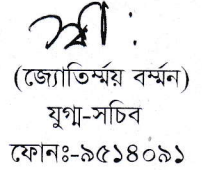 (জ্যোতির্ম্ময় বর্ম্মন)
যুগ্ম-সচিব
ফোনঃ-৯৫১৪০৯১